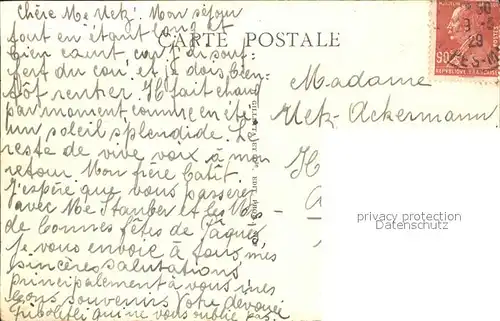 Chère Me Uetz! Mon séjour
tout en étant long et
bien court, car j'ai souf-
fert du cou, et je dois bien-
tôt rentrer. Il fait chaud
par moment, comme en été
un soleil splendide. Le
reste de vive voix à mon
retour. Mon frère bâtit.
J'espère que vous passerez
avec Me Stauber et les
de bonnes fêtes de Pâques
Je vous envoie à tous mes
sincères salutations
principalement à vous mes
bons souvenirs Votre dévouée
qui ne vous oublie pas.
CARTE POSTALE
Madame
Uetz-Ackermann
H
privacy protection
Datenschutz